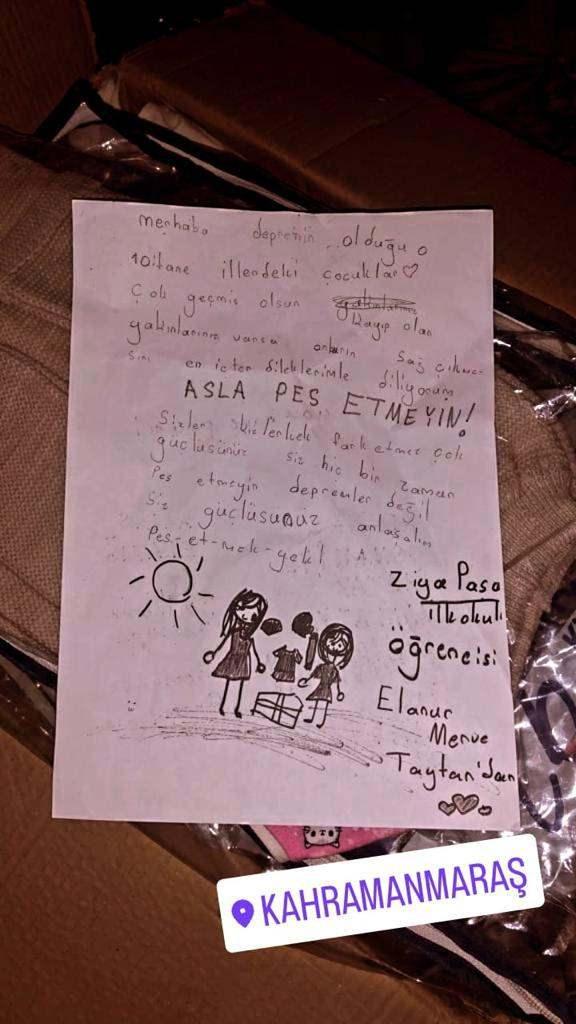 merhaba depremin olduğu o
10 tane illerdeki çocuklar♡
Çok geçmiş olsun yakınlarınız kayıp olan
yakınlarınız varsa onların sağ çıkma-
sını en içten dileklerimle diliyorum
ASLA PES ETMEYİN!
Sizler kız/erkek fark etmez çok
güçlüsünüz siz hiç bir zaman
pes etmeyin depremler değil
siz güçlüsünüz anlaşalım
Pes-et-mek-yok!
Ziya Paşa
ilkokulu
öğrencisi
Elanur
Merve
Taytan'dan
KAHRAMANMARAŞ